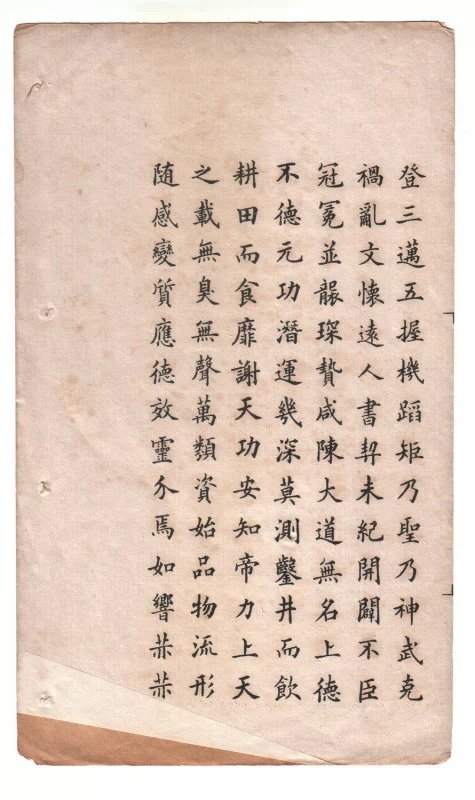 登三邁五握機蹈矩乃聖乃神武克
禍亂文懷遠人書契未紀開闢不臣
冠冕並襲琛贄咸陳大道無名上德
不德元功潛運幾深莫測鑿井而飲
耕田而食靡謝天功安知帝力上天
之載無臭無聲萬類資始品物流形
随感變質應德效靈介焉如響赫赫